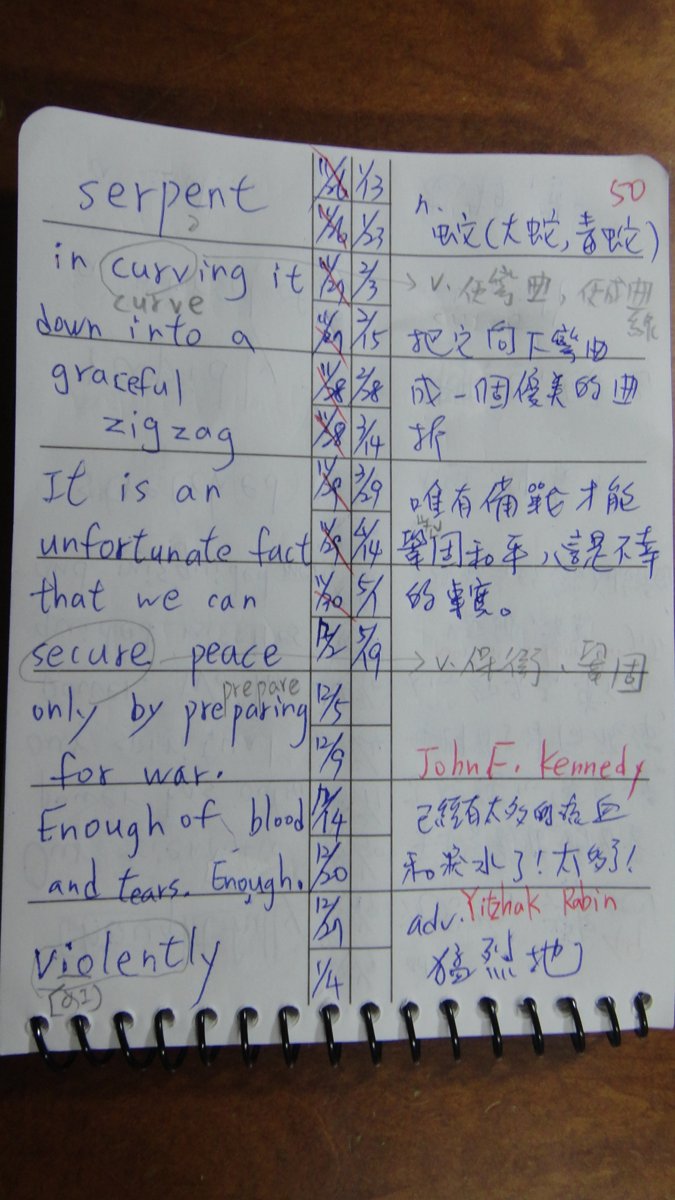 50
serpent
n.
蛟(大蛇,毒蛇)
in curving it
curve
v. 使彎曲、使成曲
線
down into a
把它向下彎曲
graceful
成一個優美的曲
zigzag
折
It is an
唯有備戰才能
unfortunate fact
鞏固和平,這是不幸
that we can
的事實。
secure peace
v. 保衛、鞏固
prepare
only by preparing
for war.
John F. Kennedy
Enough of blood
已經有太多的
and tears. Enough.
水了!太多了!
Yitzhak Rabin
violently
adv.
猛烈地
11/26
11/26
11/27
11/27
11/28
11/28
11/29
11/29
11/30
12/2
12/5
12/9
12/14
12/20
12/27
1/4
1/13
1/23
2/3
2/15
2/28
3/14
3/29
4/14
5/1
5/19